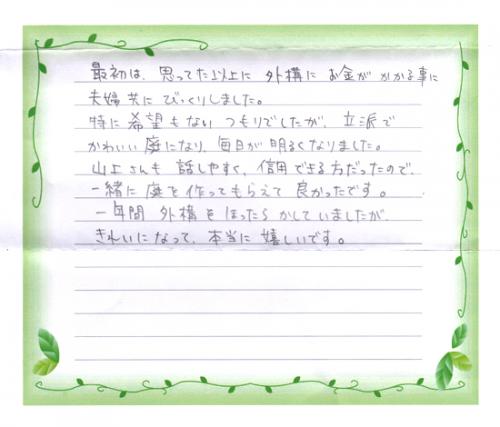 最初は、思ってた以上に 外構に お金が かかる事に
夫婦共に びっくりしました。
特に 希望も ない つもりでしたが、立派で
かわいい 庭になり、毎日が 明るくなりました。
山上さんも 話しやすく、信用できる方だったので、
一緒に 庭を作ってもらえて 良かったです。
一年間 外構を ほったらかしていましたが
きれいになって、本当に 嬉しいです。